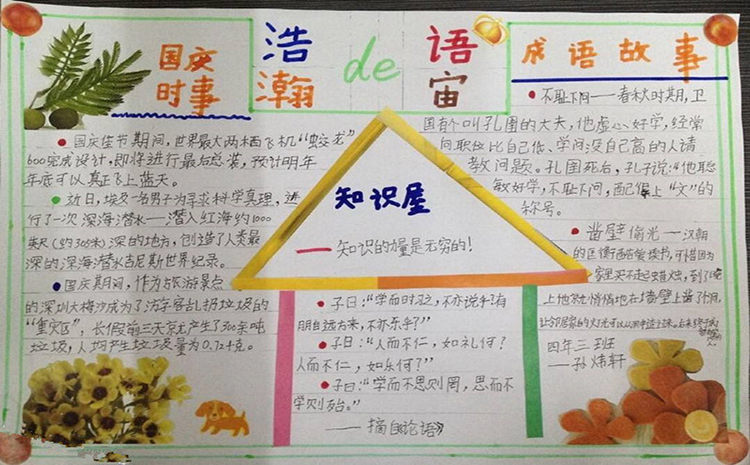 国庆
时事
浩
瀚
de
语
宙
成语故事
国庆佳节期间,世界最大两栖飞机“蛟龙”
600完成设计,即将进行最后总装,预计明年
年底可以真正飞上蓝天。
近日,埃及一名男子为寻求科学真理,进
行了一次深海潜水——潜入红海约1000
英尺(约305米)深的地方,创造了人类最
深的深海潜水吉尼斯世界纪录。
国庆期间,作为旅游景点
的深圳大梅沙成为了游客乱扔垃圾的
“重灾区”,长假前三天总共产生了300余吨
垃圾,人均产生垃圾量为0.724克。
知识屋
——知识的力量是无穷的!
子曰:“学而时习之,不亦说乎?有
朋自远方来,不亦乐乎?”
子曰:“人而不仁,如礼何?
人而不仁,如乐何?”
子曰:“学而不思则罔,思而不
学则殆。”
——摘自论语》
不耻下问——春秋时期,卫
国有个叫孔圉的大夫,他虚心好学,经常
向职位比自己低、学问没自己高的人请
教问题。孔圉死后,孔子说:“他聪
敏好学,不耻下问,配得上“文”的
称号。
凿壁偷光——汉朝
的匡衡酷爱读书,可惜因为
家里买不起蜡烛,到了晚
上他就悄悄地在墙壁上凿了个洞,
让邻居家的灯光可以从洞中透过来。后来终于成
四年三班
——孙炜轩